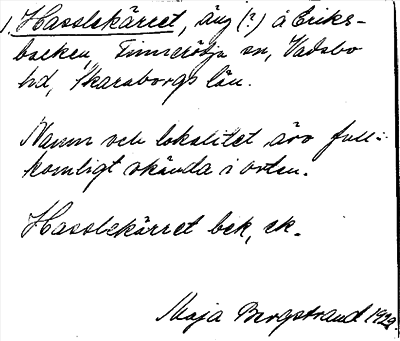 1. Hasslekärret, äng (?) å Eriks-
backen, Finnerödja sn, Vadsbo
hd, Skaraborgs län.
Namn och lokalitet äro full-
komligt okända i orten.
Hasslekärret bek, sk.
Maja Bergstrand 1929.